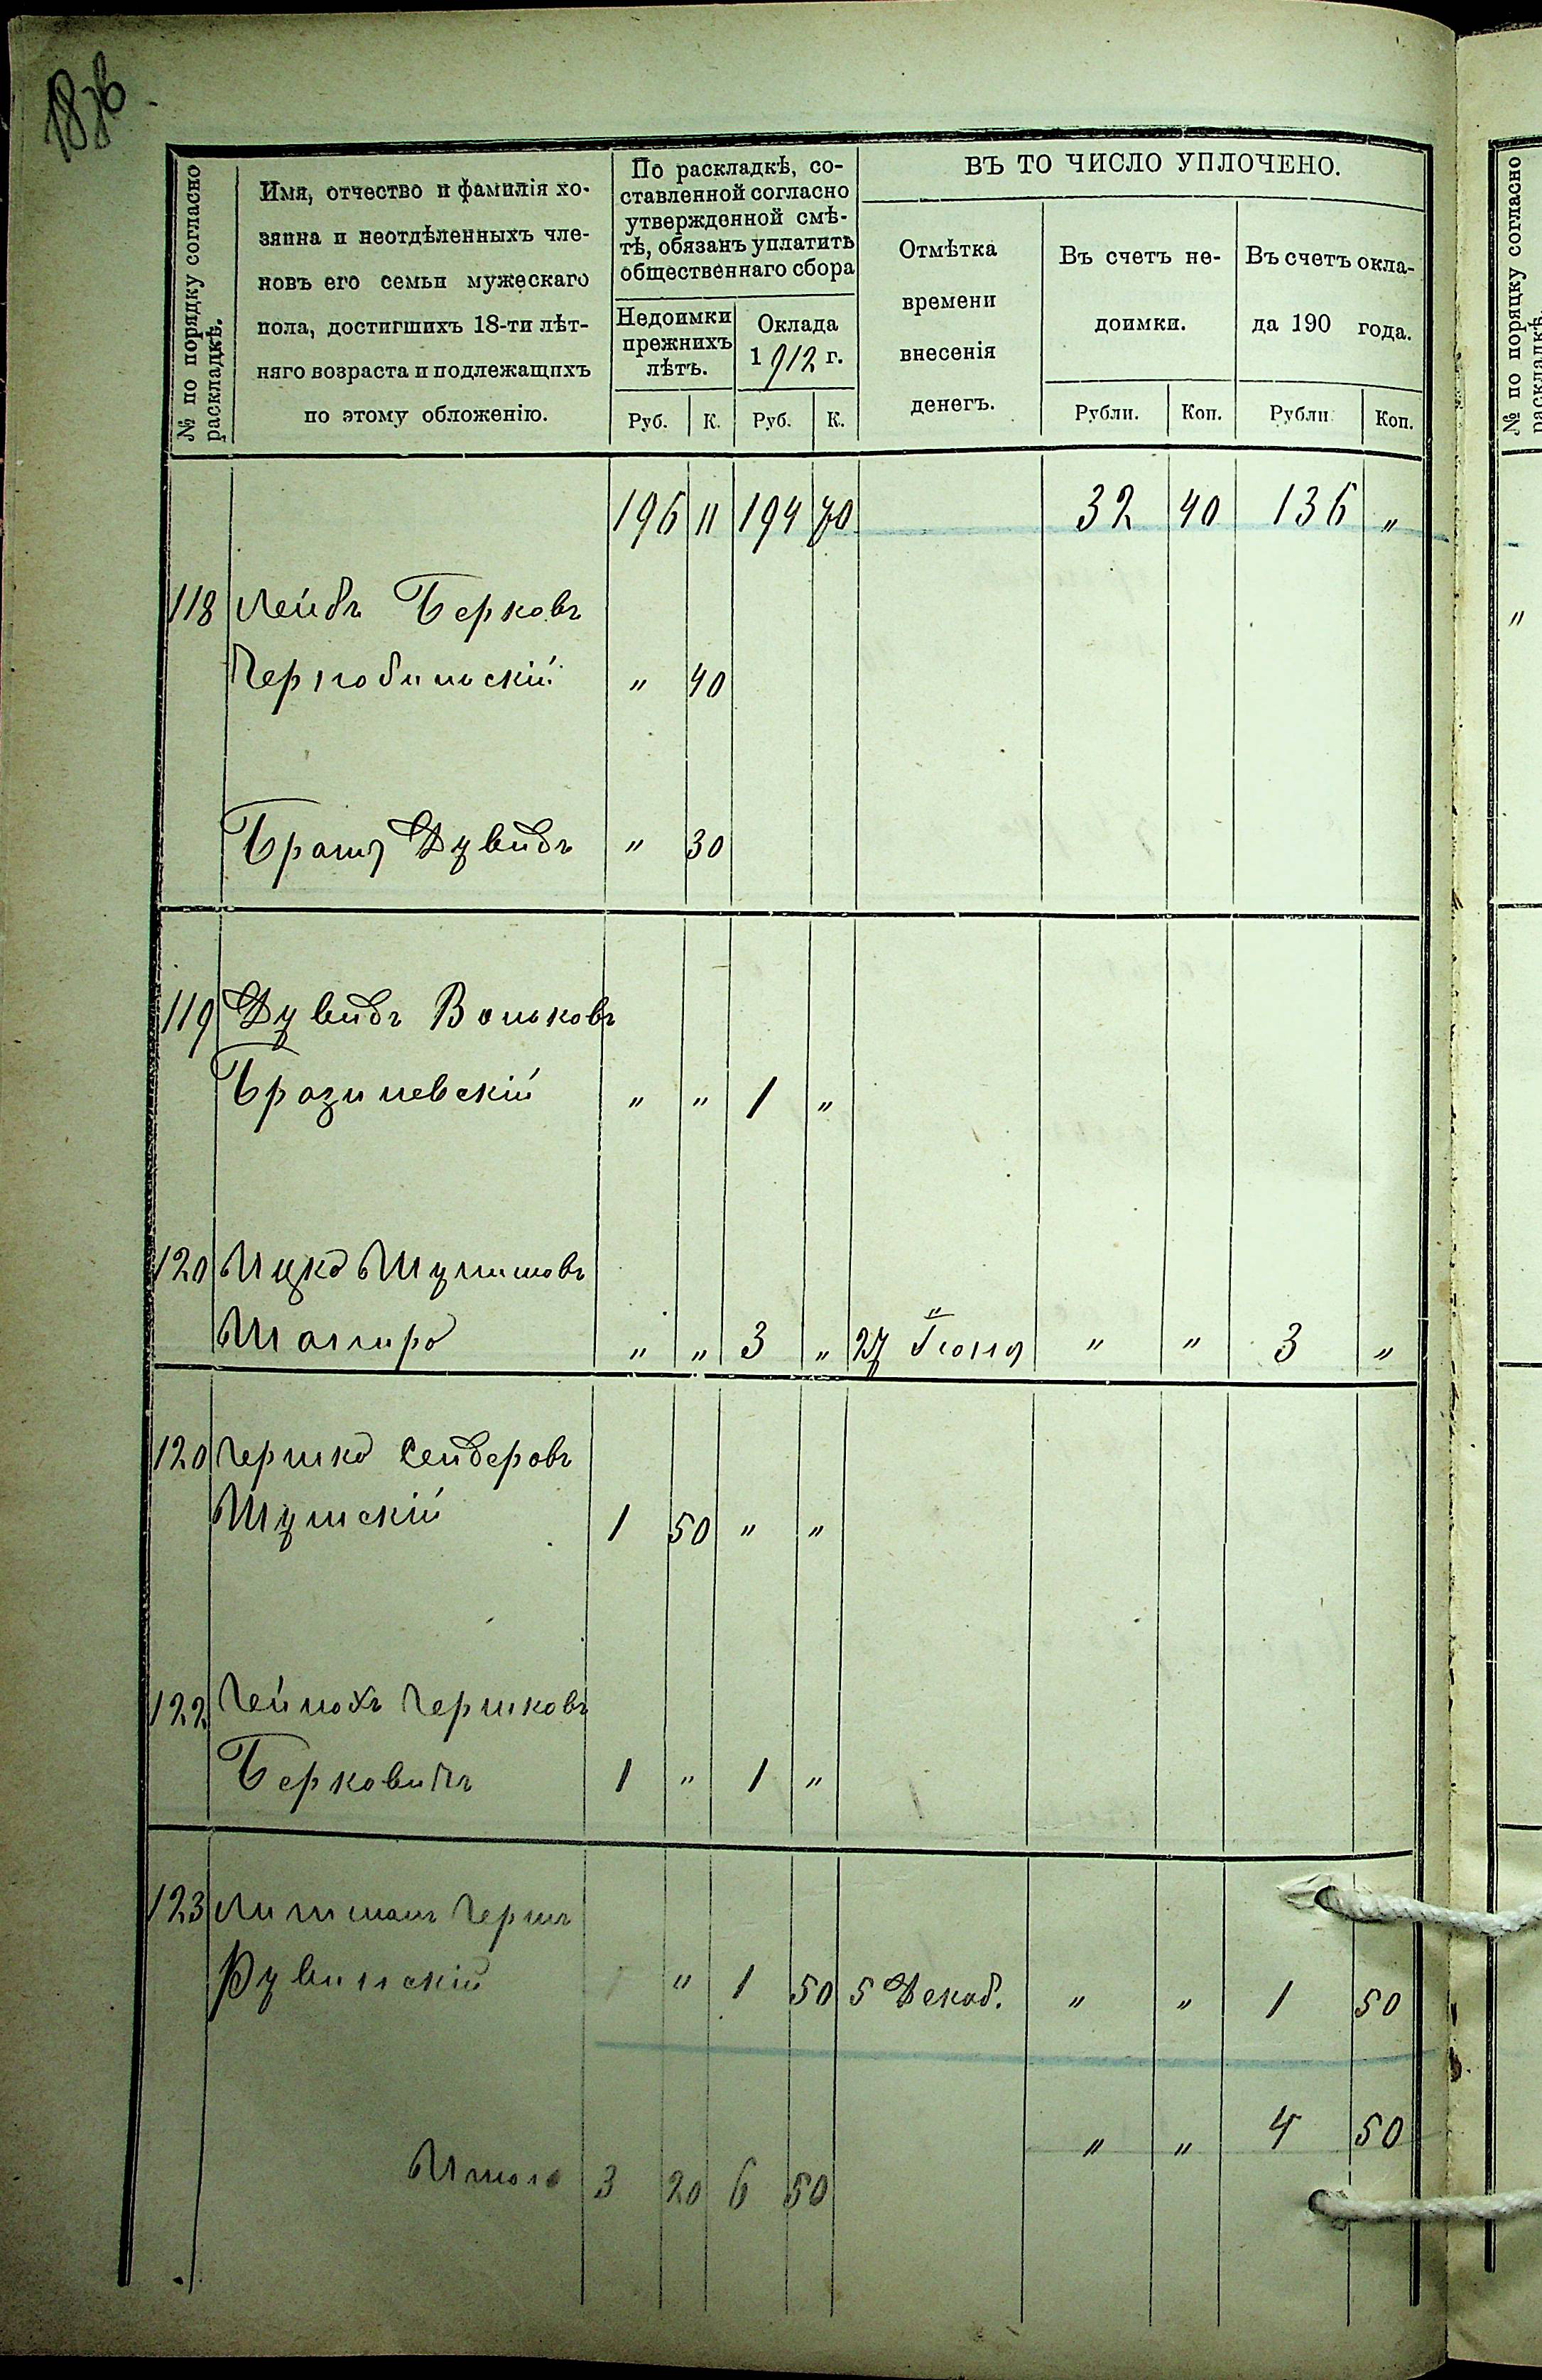 № по порядку согласно раскладкѣ.
Имя, отчество и фамилія хо-
зяина и неотдѣленныхъ чле-
новъ его семьи мужескаго
пола, достигшихъ 18-ти лѣт-
няго возраста и подлежащихъ
по этому обложенію.
По раскладкѣ, со-
ставленной согласно
утвержденной смѣ-
тѣ, обязанъ уплатить
общественнаго сбора
Недоимки
прежнихъ
лѣтъ.
Оклада
1912 г.
Руб. К. Руб. К.
ВЪ ТО ЧИСЛО УПЛОЧЕНО.
Отмѣтка
времени
внесенія
денегъ.
Въ счетъ не-
доимки.
Рубли. Коп.
Въ счетъ окла-
да 190 года.
Рубли Коп.
196 11 194 70 32 40 136 "
118 Лейбъ Берковъ
Чернобильскій " 40
Братъ Дувидъ " 30
119 Дувидъ Вольковъ
Бразилевскій " " 1 "
120 Ицко Шулимовъ
Шапиро " " 3 " 27 Іюня " " 3 "
120 Гершко Сендеровъ
Шумскій 1 50 " "
122 Гейнохъ Гершковъ
Берковичъ 1 " 1 "
123 Литманъ Гершъ
Рувинскій " 1 50 5 Декаб. " " 1 50
" " 4 50
Итого 3 20 6 50
№ по порядку согласно
раскладкѣ.
"